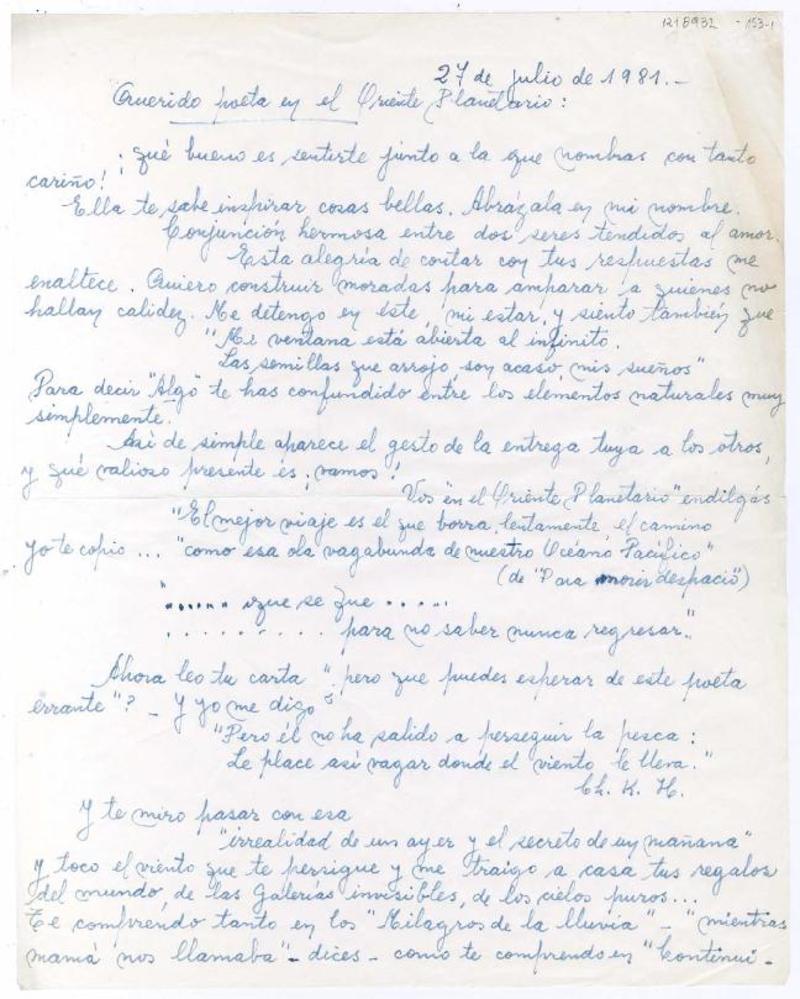 1218932 - 153-1
27 de julio de 1981.-
Querido poeta en el Oriente Planetario:
¡qué bueno es sentirte junto a la que nombras con tanto
cariño!
Ella te sabe inspirar cosas bellas. Abrázala en mi nombre.
Conjunción hermosa entre dos seres tendidos al amor.
Esta alegría de contar con tus respuestas me
enaltece. Quiero construir moradas para amparar a quienes no
hallan calidez. Me detengo en éste, mi estar, y siento también que
"Mi ventana está abierta al infinito.
Las semillas que arrojo son acaso mis sueños"
Para decir "Algo" te has confundido entre los elementos naturales muy
simplemente.
Así de simple aparece el gesto de la entrega tuya a los otros,
y qué valioso presente es ¡vamos!
Vos "en el Oriente Planetario" endilgás
"El mejor viaje es el que borra, lentamente, el camino
yo te copio ... "como esa ola vagabunda de nuestro Océano Pacífico"
(de "Para morir despacio")
"...... que se que .....
.......... para no saber nunca regresar."
Ahora leo tu carta "¿pero que puedes esperar de este poeta
errante"? - Y yo me digo
"Pero él no ha salido a perseguir la pesca:
Le place así vagar donde el viento le lleva."
Ch. K. H.
Y te miro pasar con esa
"irrealidad de un ayer y el secreto de un mañana"
Y toco el viento que te persigue y me traigo a casa tus regalos
del mundo, de las Galerías invisibles, de los cielos puros...
Te comprendo tanto en los "Milagros de la lluvia" - "mientras
mamá nos llamaba" - dices - como te comprendo en "Continui -